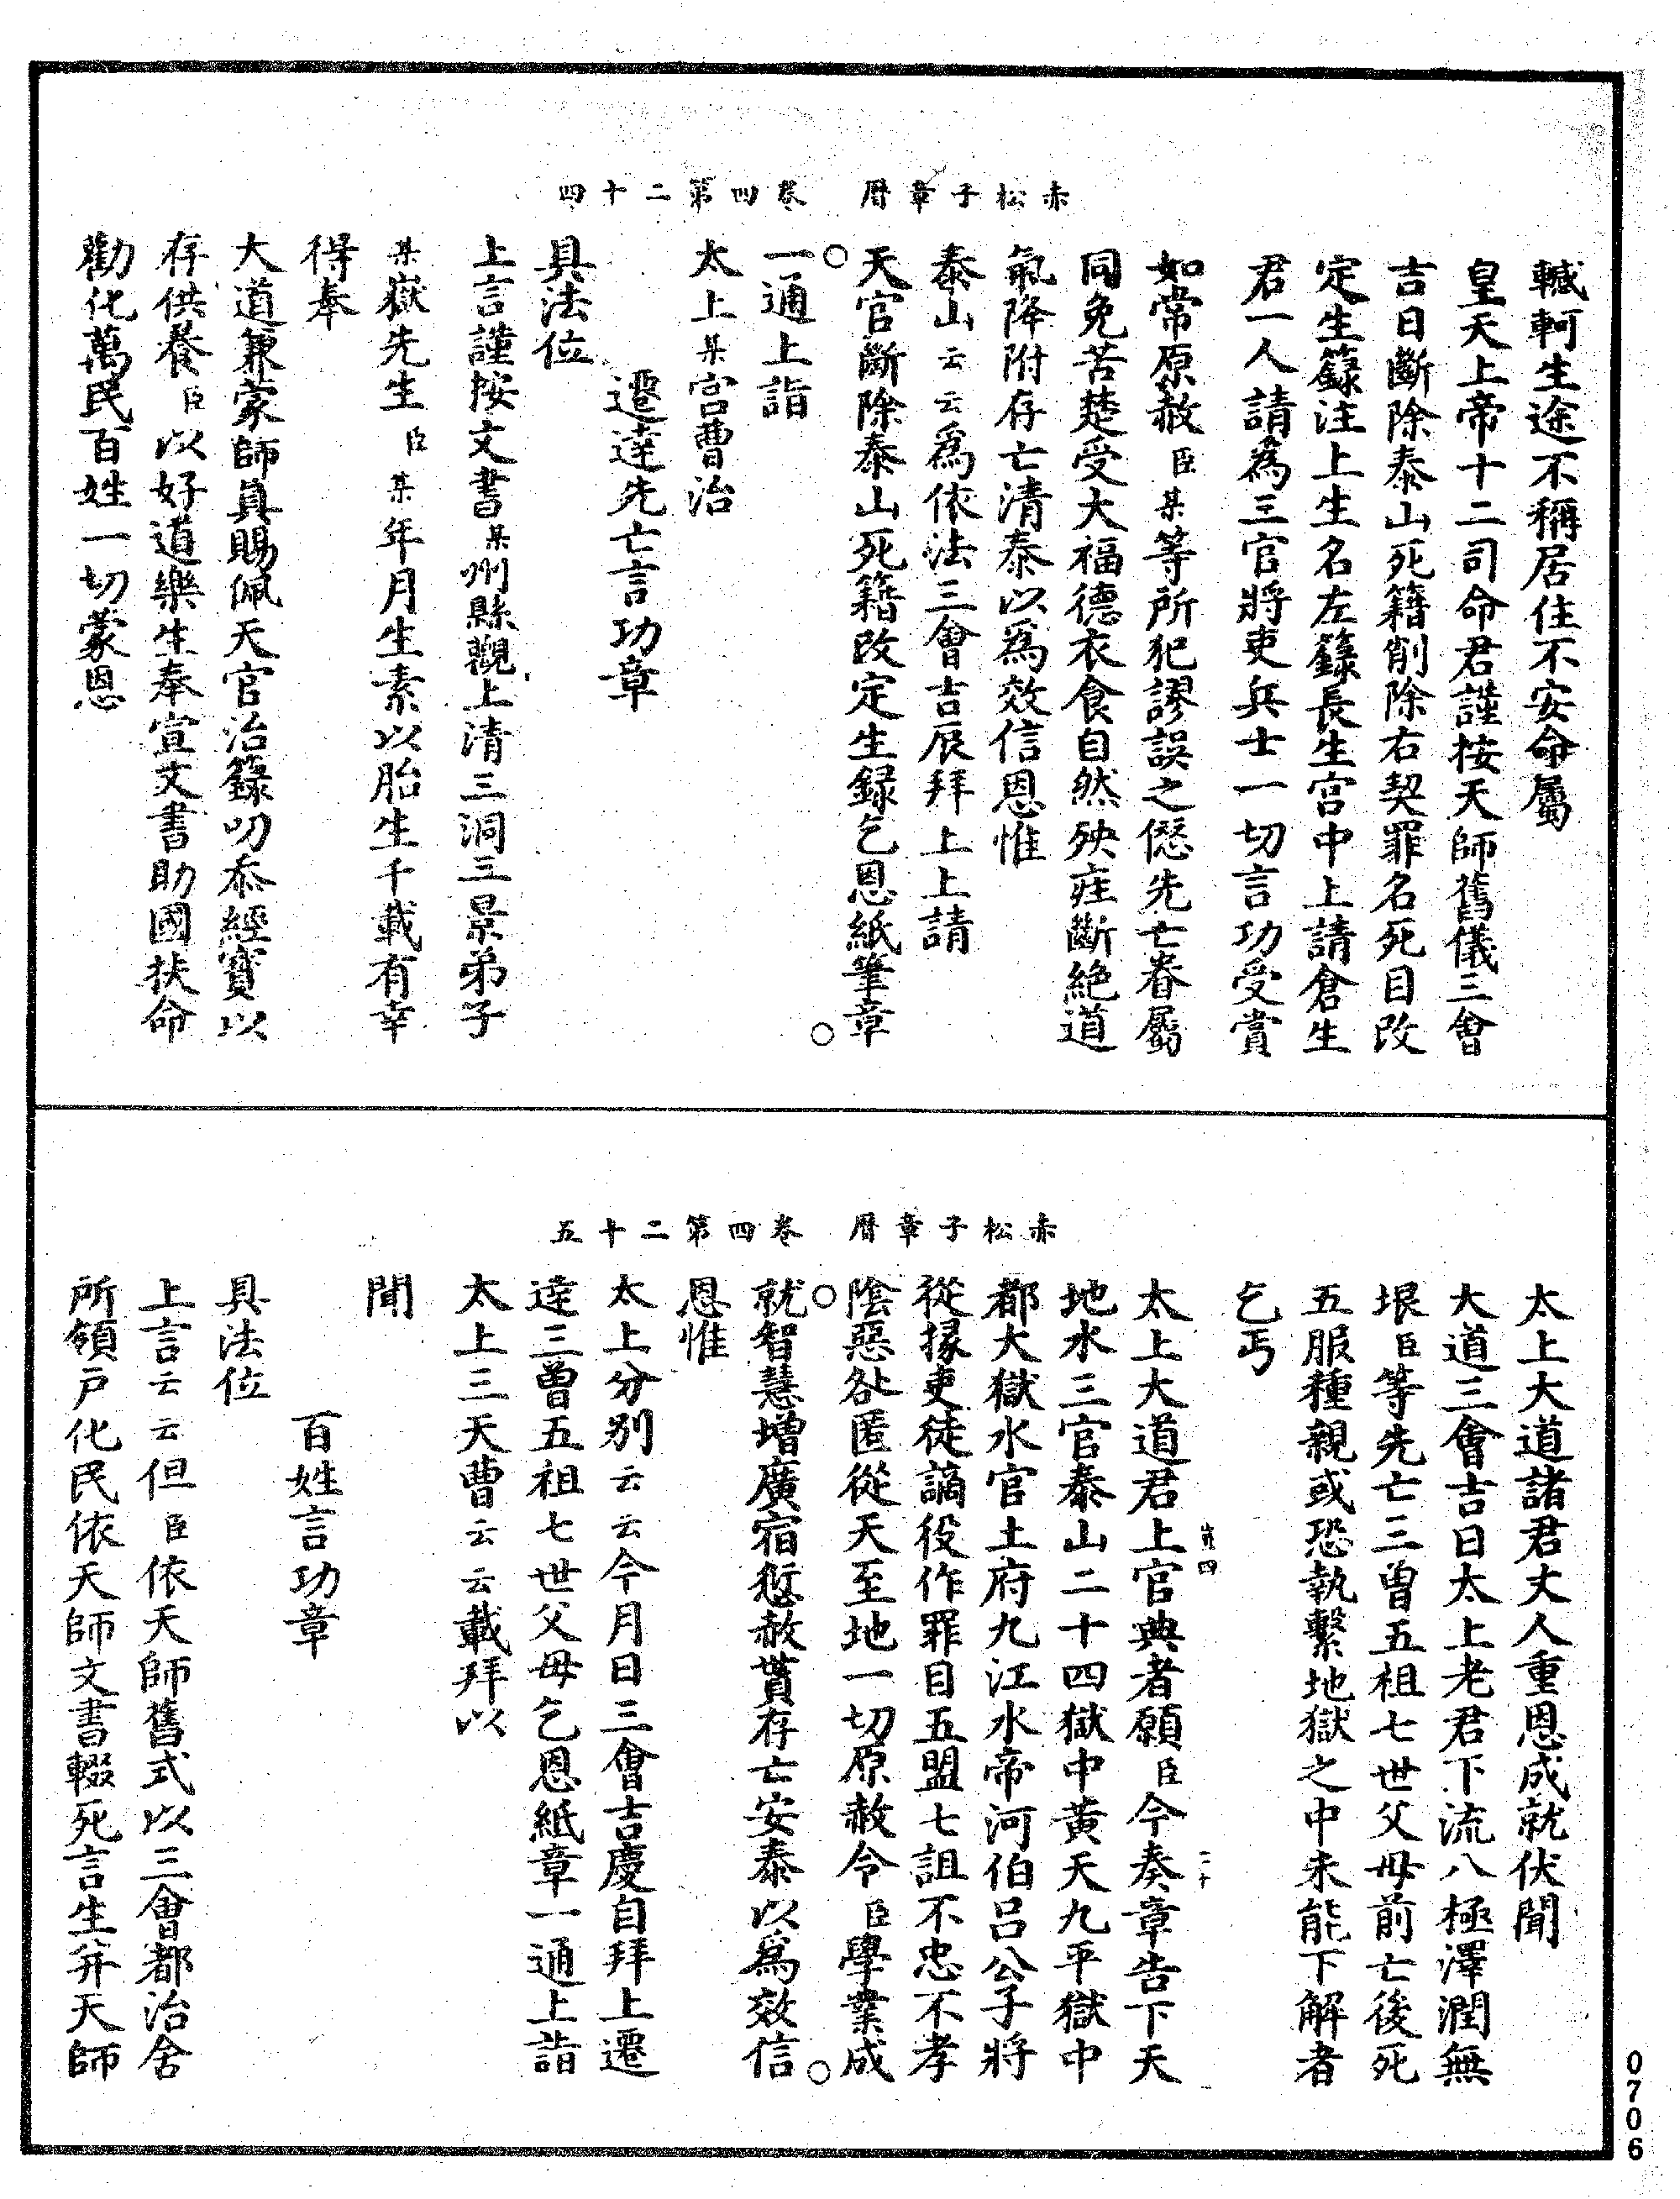 赤松子章曆　卷四第二十四
轗軻生途不稱居住不安命屬
皇天上帝十二司命君謹按天師舊儀三會
吉日斷除泰山死籍削除右契罪名死目改
定生籙注上生名左籙長生宮中上請倉生
君一人請為三官將吏兵士一切言功受賞
如常原赦臣某等所犯謬誤之愆先亡眷屬
同免苦楚受大福德衣食自然殃疰斷絕道
氣降附存亡清泰以爲效信恩惟
泰山云云爲依法三會吉辰拜上上請
天官斷除泰山死籍改定生錄乞恩紙筆章
一通上詣
太上某宮曹治
遷達先亡言功章
具法位
上言謹按文書某州縣觀上清三洞三景弟子
某嶽先生臣某年月生素以胎生千載有幸
得奉
大道兼蒙師真賜佩天官治籙叨忝經寶以
存供養臣以好道樂生奉宣文書助國扶命
勸化萬民百姓一切蒙恩
赤松子章曆　卷四第二十五
太上大道諸君丈人重恩成就伏聞
大道三會吉日太上老君下流八極澤潤無
垠臣等先亡三曾五祖七世父母前亡後死
五服種親或恐執繫地獄之中未能下解者
乞丐
太上大道君上官典者願臣今奏章告下天
地水三官泰山二十四獄中黃天九平獄中
都大獄水官土府九江水帝河伯呂公子將
從掾吏徒謫役作罪目五盟七詛不忠不孝
陰惡咎匿從天至地一切原赦令臣學業成
就智慧增廣宿愆赦貰存亡安泰以爲效信
恩惟
太上分别云云今月日三會吉慶自拜上遷
達三曾五祖七世父母乞恩紙章一通上詣
太上三天曹云云載拜以
聞
百姓言功章
具法位
上言云云但臣依天師舊式以三會都治舍
所領戶化民依天師文書輟死言生并天師
0706